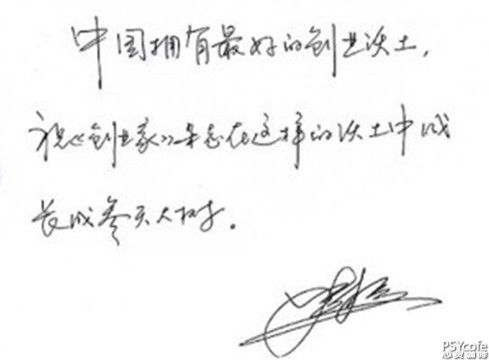 中国拥有最好的创业沃土，
祝《创业家》杂志在这样的沃土中成
长成参天大树。
PSYcofe